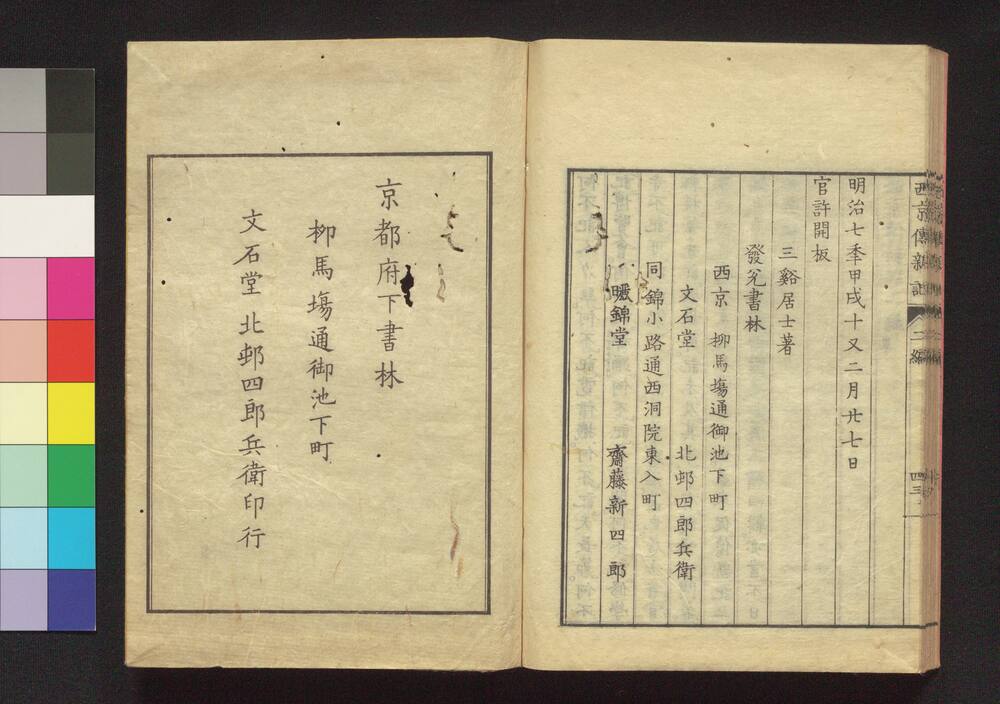 西京傳新記 二編
明治七年甲戌十又二月廿七日
官許開板
三谿居士著
發兌書林
西京 柳馬塲通御池下町
文石堂 北邨四郎兵衛
同 錦小路通西洞院東入町
齋藤新四郎
京都府下書林
柳馬塲通御池下町
文石堂 北邨四郎兵衛印行